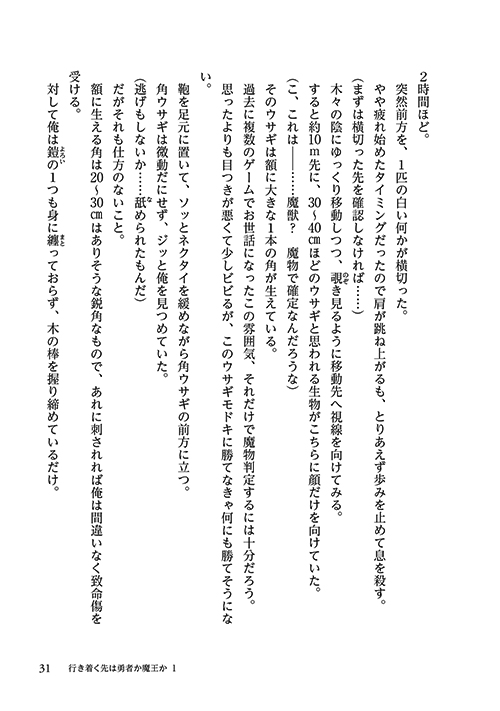 2時間ほど。
突然前方を、1匹の白い何かが横切った。
やや疲れ始めたタイミングだったので肩が跳ね上がるも、とりあえず歩みを止めて息を殺す。
(まずは横切った先を確認しなければ……)
木々の陰にゆっくり移動しつつ、覗き見るように移動先へ視線を向けてみる。
すると約10m先に、30〜40㎝ほどのウサギと思われる生物がこちらに顔だけを向けていた。
(こ、これは――……魔獣? 魔物で確定なんだろうな)
そのウサギは額に大きな1本の角が生えている。
過去に複数のゲームでお世話になったこの雰囲気、それだけで魔物判定するには十分だろう。
思ったよりも目つきが悪くて少しビビるが、このウサギモドキに勝てなきゃ何にも勝てそうにな
い。
鞄を足元に置いて、ソッとネクタイを緩めながら角ウサギの前方に立つ。
角ウサギは微動だにせず、ジッと俺を見つめていた。
(逃げもしないか……舐められたもんだ)
だがそれも仕方のないこと。
額に生える角は20〜30㎝はありそうな鋭角なもので、あれに刺されれば俺は間違いなく致命傷を
受ける。
対して俺は鎧の1つも身に纏っておらず、木の棒を握り締めているだけ。
31 行き着く先は勇者か魔王か 1